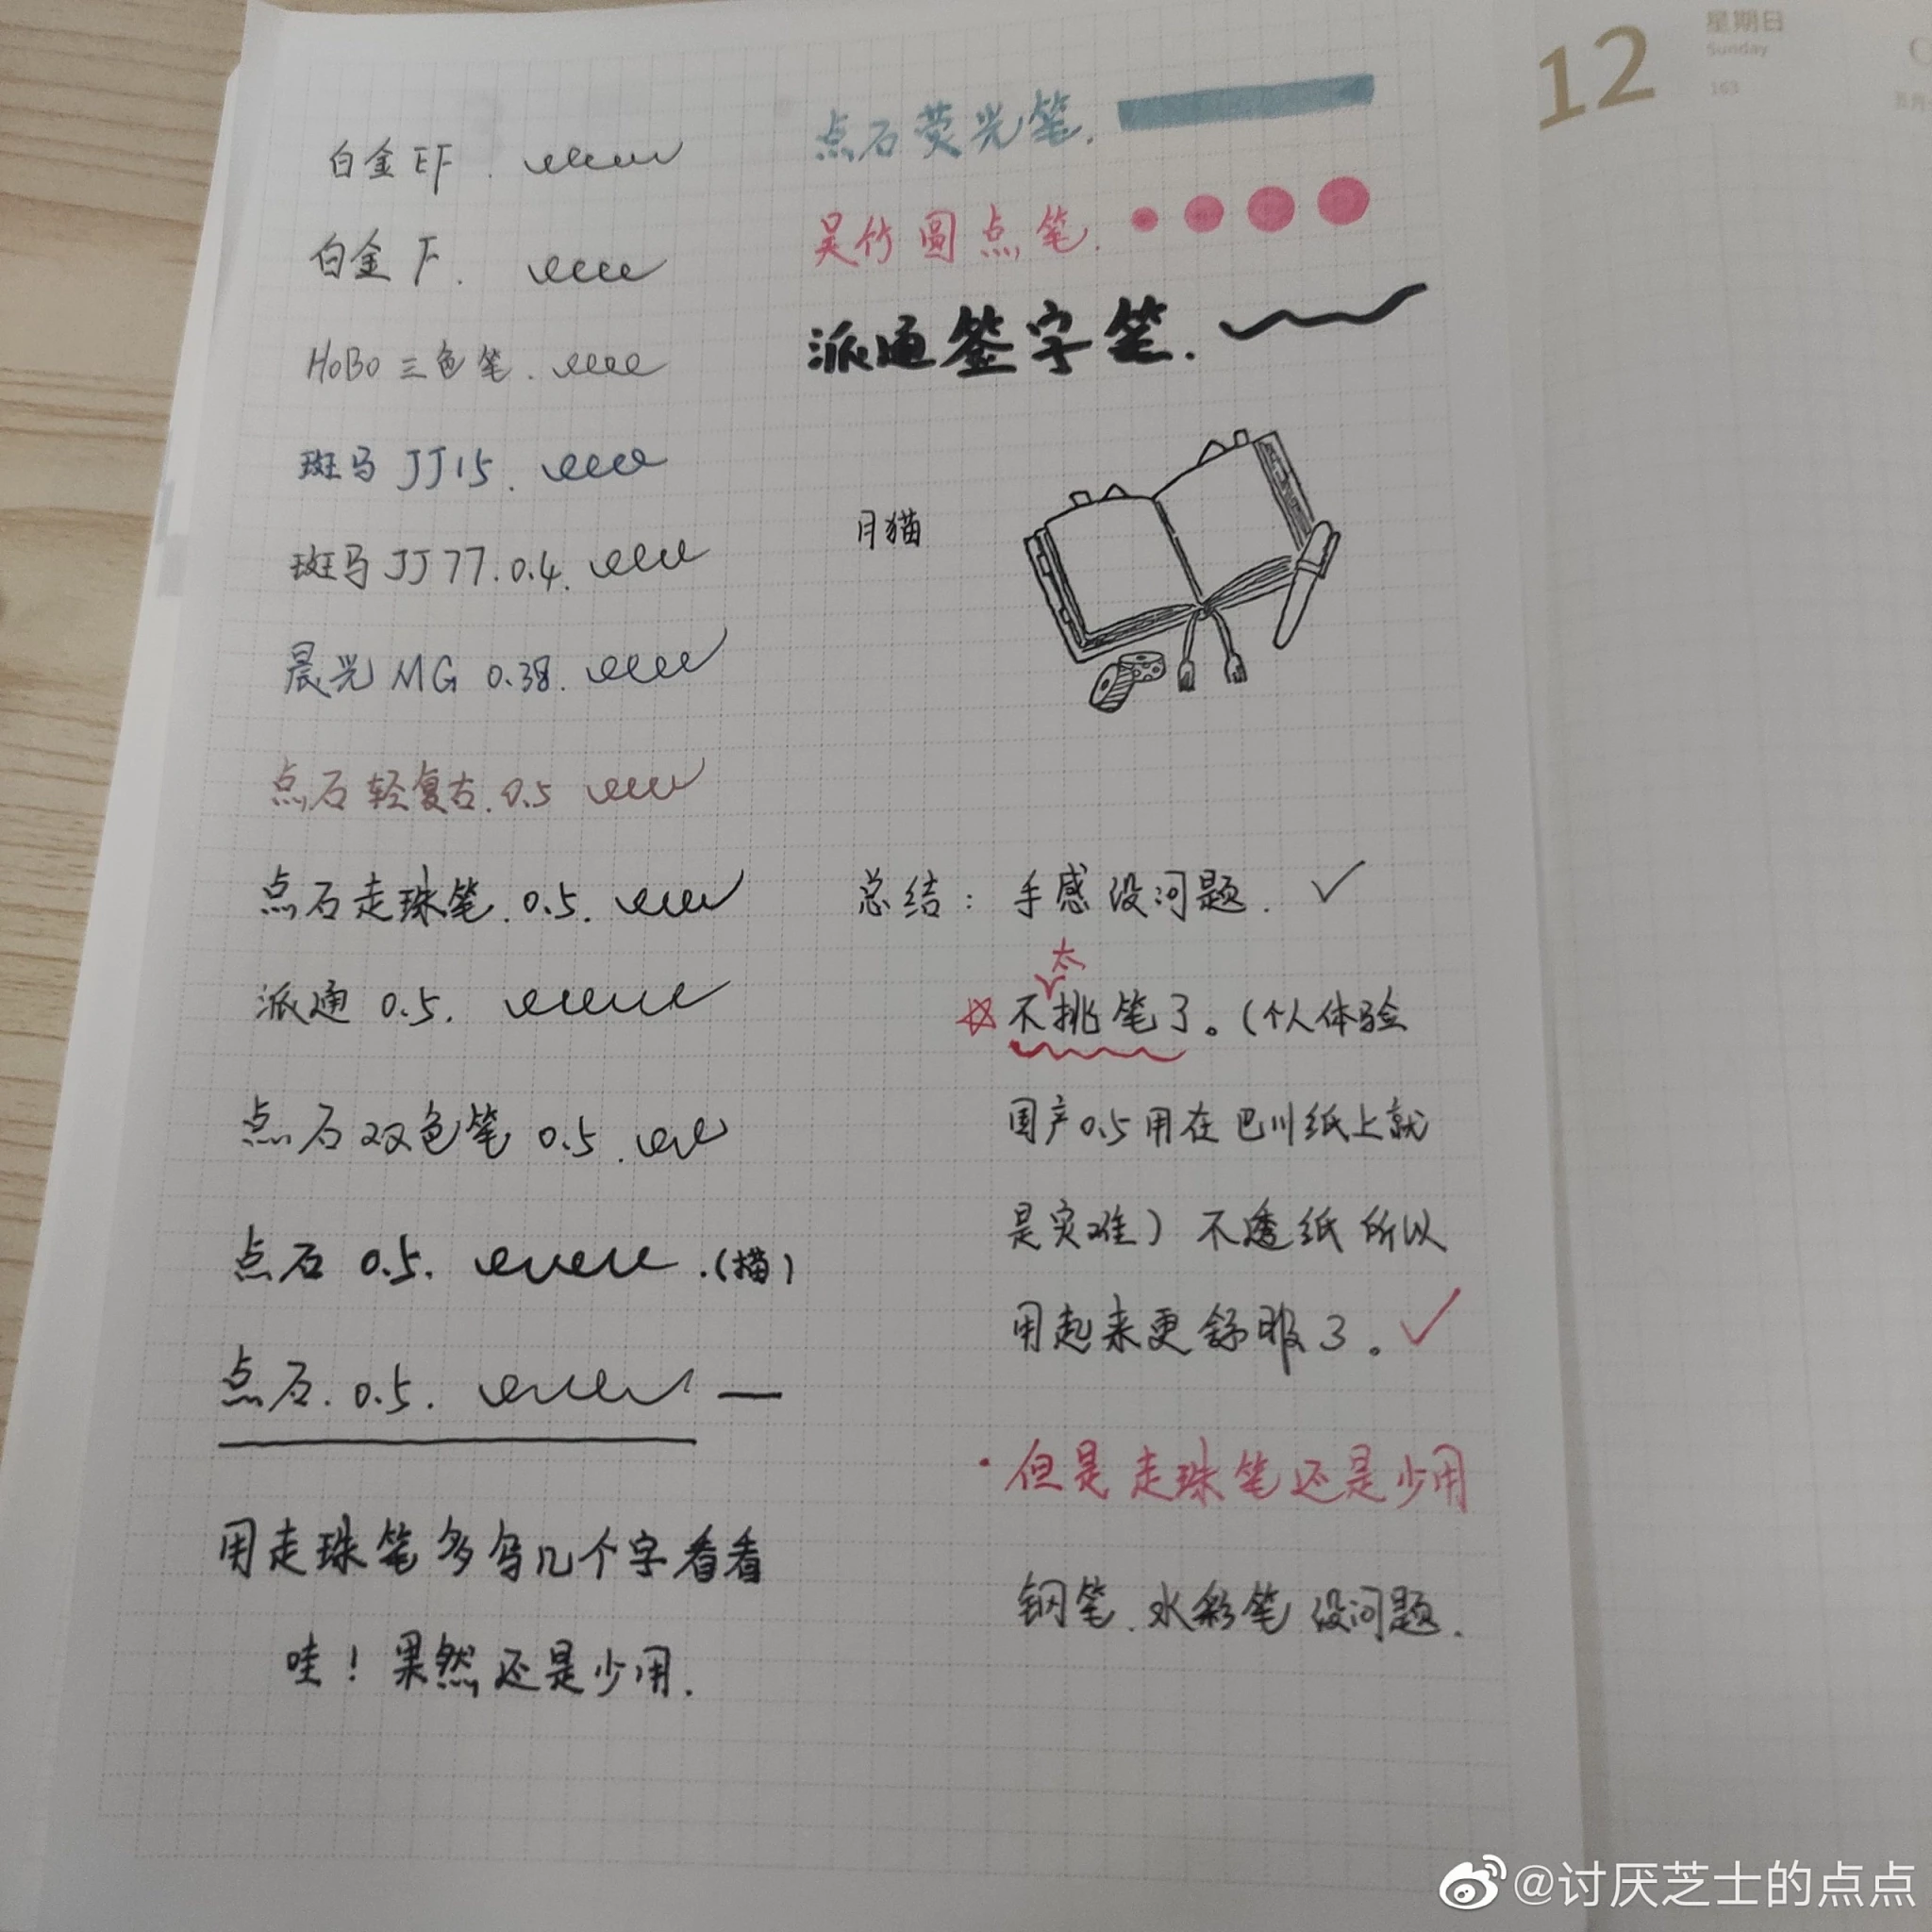 白金EF.
白金 F.
HoBo 三色笔.
斑马 JJ15.
斑马 JJ77.0.4.
晨光 MG 0.38.
点石轻复古.0.5
点石走珠笔.0.5.
派通 0.5.
点石双色笔 0.5.
点石 0.5. .(描)
点石.0.5.
用走珠笔多写几个字看看
哇!果然还是少用.
点石荧光笔.
吴竹圆点笔.
派通签字笔.
月猫
总结:手感没问题.
太
不挑笔了。(个人体验
国产0.5用在巴川纸上就
是灾难)不透纸所以
用起来更舒服了。
·但是走珠笔还是少用
钢笔.水彩笔没问题.
12
星期日
Sunday
163
@讨厌芝士的点点